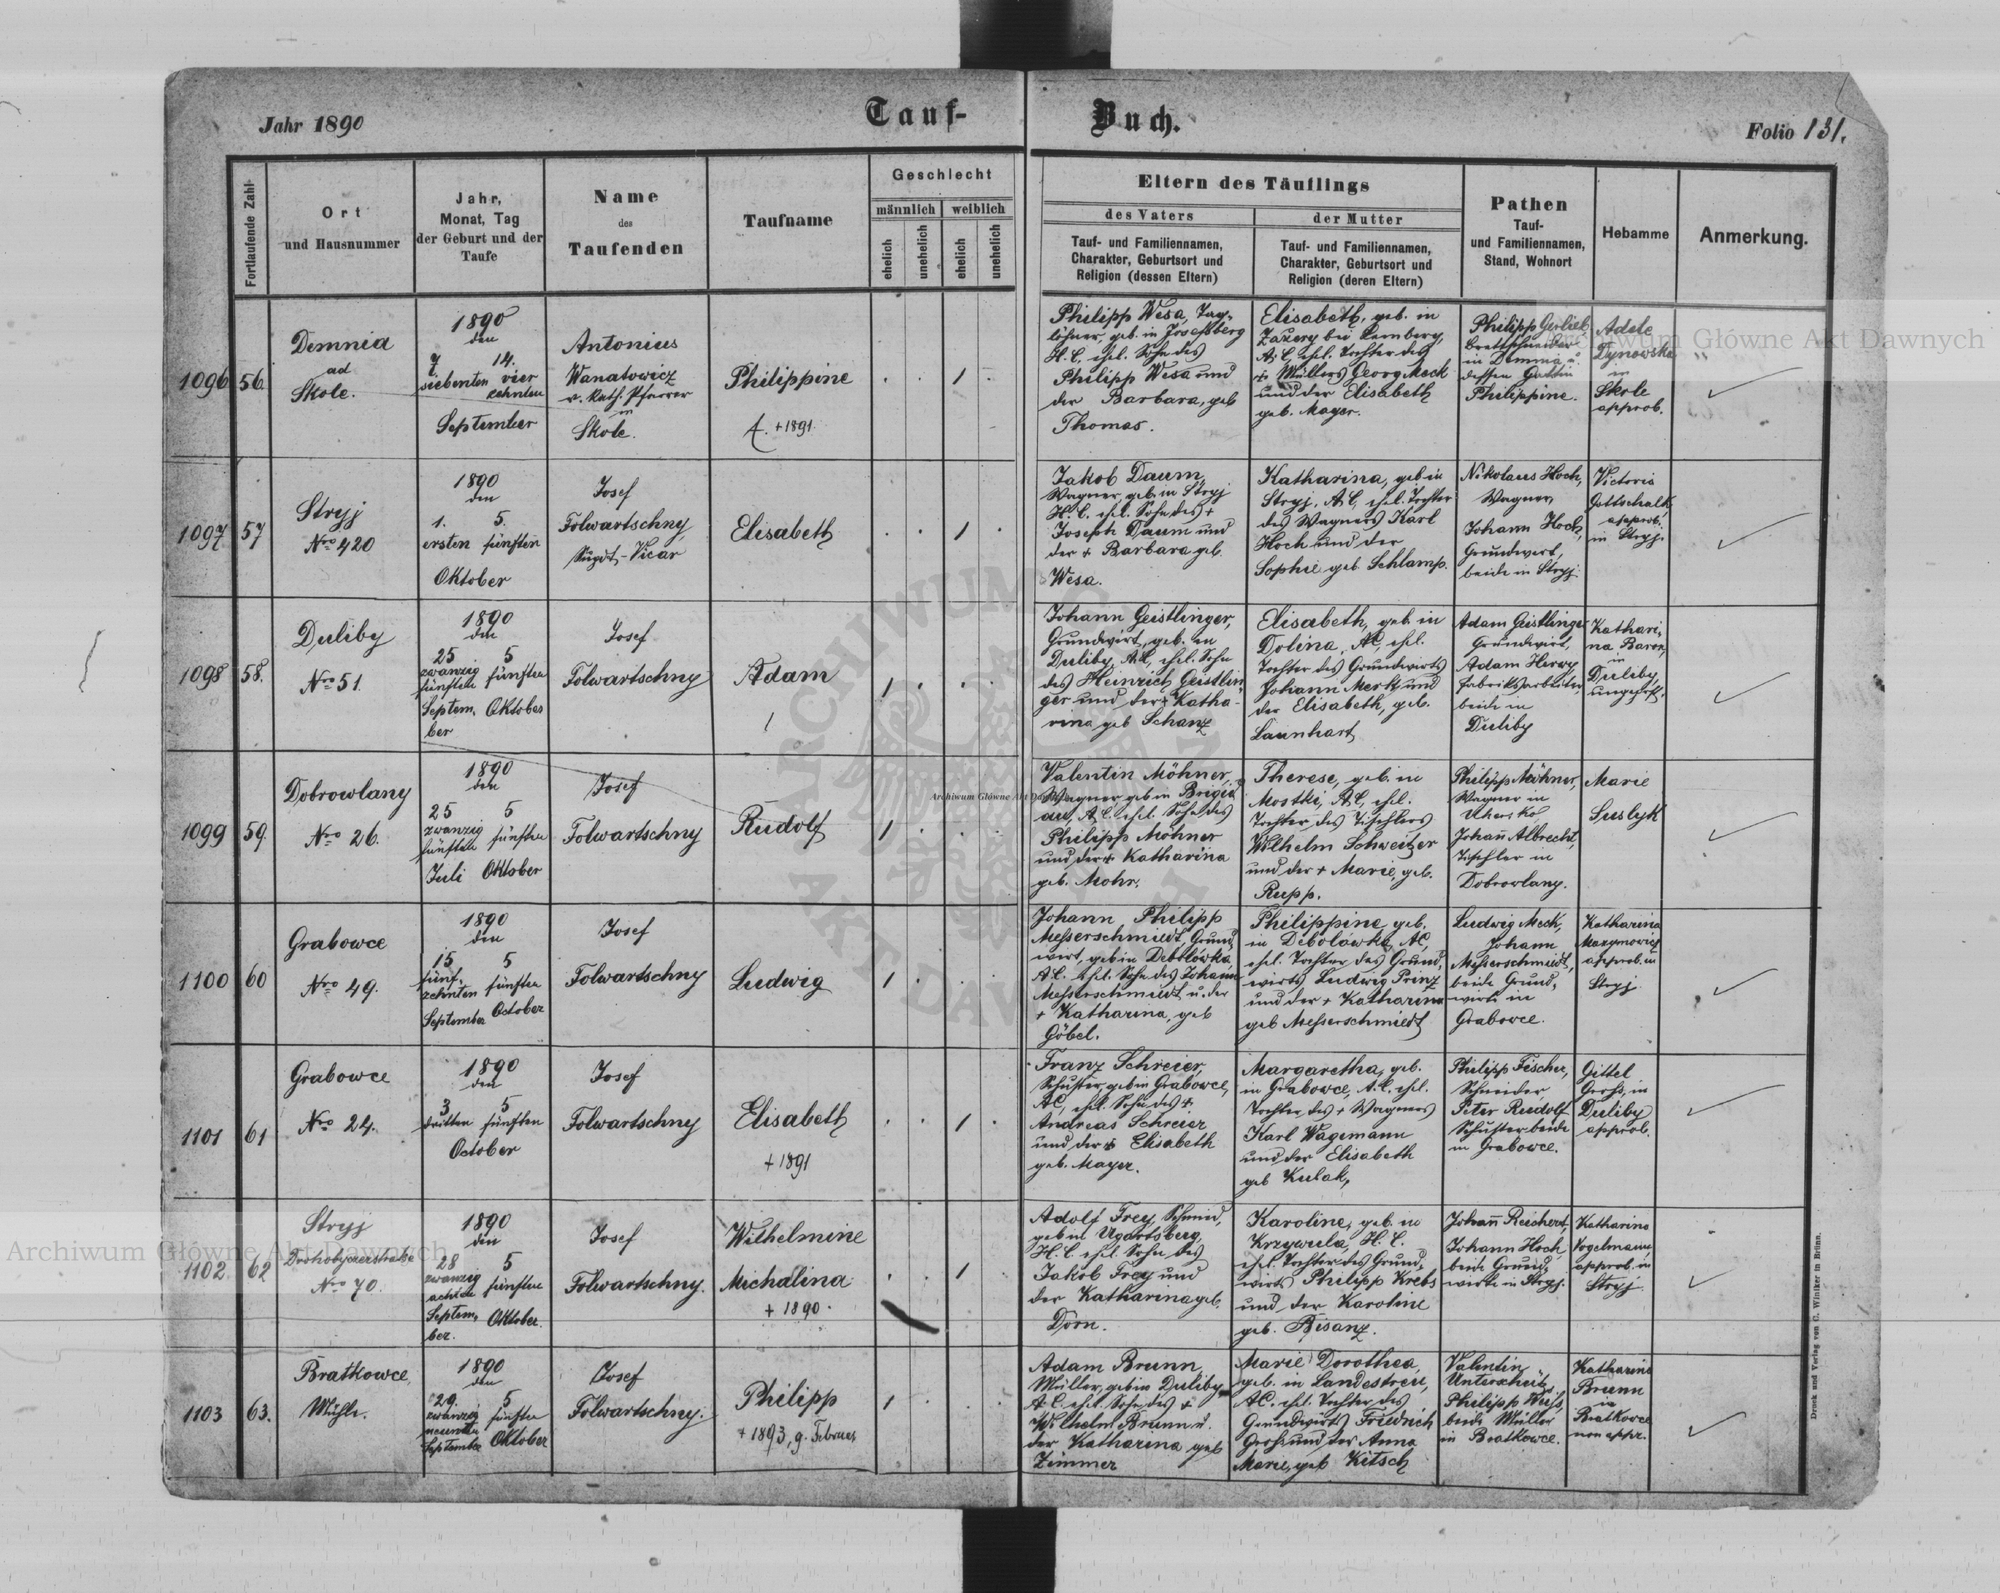 Jahr 1890
Tauf-
Buch.
Folio 131.
Fortlaufende Zahl
Ort
und Hausnummer
Jahr,
Monat, Tag
der Geburt und der
Taufe
Name
des
Taufenden
Taufname
Geschlecht
männlich
weiblich
ehelich
unehelich
ehelich
unehelich
Eltern des Täuflings
des Vaters
Tauf- und Familiennamen,
Charakter, Geburtsort und
Religion (dessen Eltern)
der Mutter
Tauf- und Familiennamen,
Charakter, Geburtsort und
Religion (deren Eltern)
Pathen
Tauf-
und Familiennamen,
Stand, Wohnort
Hebamme
Anmerkung.
1096
56.
Demnia
ad
Skole.
1890
den
7. 14.
siebenten vier
zehnten
September
Antonius
Wanatowicz
r. kath. Pfarrer
in
Skole.
Philippine
+ 1891.
1
Philipp Wesa, Tag-
löhner, geb. in Josefsberg
H. C, ehl. Sohn des
Philipp Wesa und
der Barbara, geb
Thomas.
Elisabeth, geb. in
bei Lemberg,
A. C, ehl. Tochter des
+ Müllers Georg Meck
und der Elisabeth
geb. Mayer.
Philipp Gerlieb
Brettschneider
in Demnia u
dessen Gattin
Philippine.
Adele
Dynowska
in
Skole
approb.
1097
57
Stryj
Nro 420
1890
den
1. 5.
ersten fünften
Oktober
Josef
Folwartschny,
Vicar
Elisabeth
1
Jakob Daum,
Wagner, geb. in Stryj
H. C. ehl. Sohn des +
Joseph Daum und
der + Barbara geb.
Wesa.
Katharina, geb in
Stryj, A. C, ehl. Tochter
des Wagners Karl
Hoch und der
Sophie geb. Schlamp.
Nikolaus Hoch,
Wagner,
Johann Hoch,
Grundwirt,
beide in Stryj.
Victoria
Gottschalk
approb.
in Stryj.
1098
58.
Duliby
Nro 51.
1890
den
25 5
zwanzig
fünften fünften
Septem- Oktober
ber
Josef
Folwartschny
Adam
1
Johann Geistlinger,
Grundwirt, geb. in
Duliby, A. C, ehl. Sohn
des Heinrich Geistlin-
ger und der + Katha-
rina geb Schanz
Elisabeth, geb. in
Dolina, A.C, ehl.
Tochter des Grundwirts
Johann Merk und
der Elisabeth, geb.
Launhart
Adam Geistlinger
Grundwirt,
Adam Herwy
Fabriksarbeiter
beide in
Duliby
Kathari-
na Baron,
in
Duliby,
ungeprft.
1099
59.
Dobrowlany
Nro 26.
1890
den
25 5
zwanzig
fünften fünften
Juli Oktober
Josef
Folwartschny
Rudolf
1
Valentin Möhner,
Wagner geb in Brigid
au, A. C. ehl. Sohn des
Philipp Möhner
und der + Katharina
geb. Mohr.
Therese, geb. in
Mostki, A. C, ehl.
Tochter des Tischlers
Wilhelm Schweitzer
und der + Marie, geb.
Rupp.
Philipp Möhner,
Wagner in
Uhersko
Johañ Albrecht,
Tischler in
Dobrowlany.
Marie
Suslyk
1100
60
Grabowce
Nro 49.
1890
den
15 5
fünf-
zehnten fünften
September October
Josef
Folwartschny
Ludwig
1
Johann Philipp
Messerschmiedt, Grund-
wirt, geb in Debolówka,
A. C. ehl. Sohn des Johann
Messerschmiedt u. der
+ Katharina, geb
Göbel.
Philippine, geb.
in Debolówka, A.C,
ehl. Tochter des Grund-
wirts Ludwig Prinz
und der + Katharina
geb Messerschmiedt
Ludwig Meck,
Johann
Messerschmiedt,
beide Grund-
wirte in
Grabowce.
Katharina
Maxymowicz
approb. in
Stryj.
1101
61
Grabowce
Nro 24.
1890
den
3 5
dritten fünften
October
Josef
Folwartschny
Elisabeth
+ 1891
1
Franz Schreier,
Schuster, geb in Grabowce,
A.C, ehl. Sohn des +
Andreas Schreier
und der + Elisabeth
geb. Mayer.
Margaretha, geb.
in Grabowce, A. C. ehl.
Tochter des + Wagners
Karl Wagemann
und der Elisabeth
geb Kulak,
Philipp Fischer,
Schneider,
Peter Rudolf
Schuster beide
in Grabowce.
Gittel
Gross, in
Duliby
approb.
1102
62
Stryj
Drohobyczerstrasse
Nro 70.
1890
den
28 5
zwanzig
achten fünften
Septem- Oktober.
ber.
Josef
Folwartschny.
Wilhelmine
Michalina
+ 1890.
1
Adolf Frey, Schmied,
geb in Ugartsberg,
H. C. ehl. Sohn des
Jakob Frey und
der Katharina geb.
Dorn.
Karoline, geb. in
Krzywula, H. C.
ehl. Tochter des Grund-
wirts Philipp Krebs
und der Karoline
geb. Bisanz.
Johañ Reichert,
Johann Hoch,
beide Grund-
wirte in Stryj.
Katharina
Vogelmann,
approb. in
Stryj
1103
63.
Bratkowce,
Mühle.
1890
den
29. 5
zwanzig fünften
neunten
September Oktober
Josef
Folwartschny.
Philipp
+ 1893, 9. Februar
1
Adam Brunn
Müller, geb in Duliby
A. C. ehl. Sohn des +
Wilhelm Brunn u.
der Katharina geb
Zimmer
Marie Dorothea,
geb. in Landestreu,
A.C. ehl. Tochter des
Grundwirts Friedrich
Gross und der Anna
Marie, geb Kitsch
Valentin
Unterscheit,
Philipp Weiss,
beide Müller
in Bratkowce.
Katharina
Brunn
in
Bratkowce
non appr.
Druck und Verlag von C. Winiker in Brünn.
Archiwum Główne Akt Dawnych
Archiwum Główne Akt Dawnych
Archiwum Główne Akt Dawnych
ARCHIWUM GŁÓWNE AKT DAWNYCH